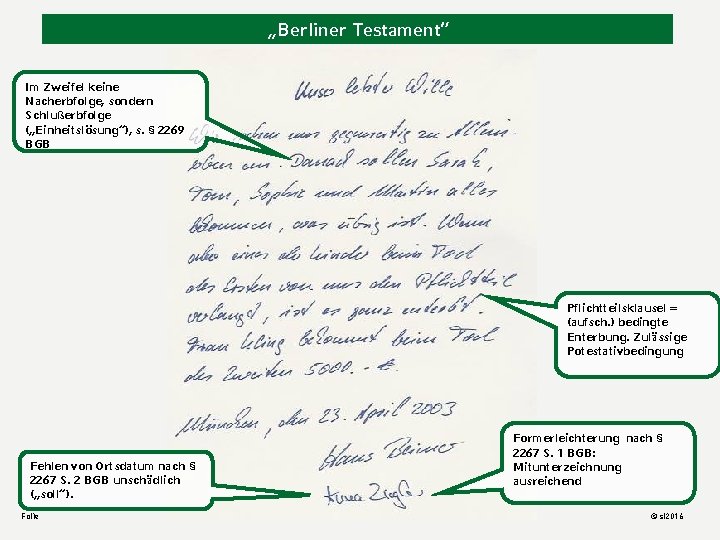 „Berliner Testament“
Im Zweifel keine
Nacherbfolge, sondern
Schlußerbfolge
(„Einheitslösung“), s. § 2269
BGB
Unser letzter Wille
uns gegenseitig zu Allein
erben ein. Danach sollen Sarah,
Tom, Sophie und Martin alles
bekommen, was übrig ist. Wenn
aber eines der Kinder beim Tod
des Ersten von uns den Pflichtteil
verlangt, ist es ganz enterbt.
Frau Kling bekommt beim Tod
des Zweiten 5000.- €.
Pflichtteilsklausel =
(aufsch.) bedingte
Enterbung. Zulässige
Potestativbedingung
München, den 23. April 2003
Hans Beimer
Anna Ziegler
Formerleichterung nach §
2267 S. 1 BGB:
Mitunterzeichnung
ausreichend
Fehlen von Ortsdatum nach §
2267 S. 2 BGB unschädlich
(„soll“).
Folie
© sl2016